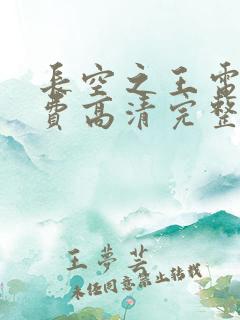 長空之王雷
費高清完整
王夢芸
未经同意禁止转载